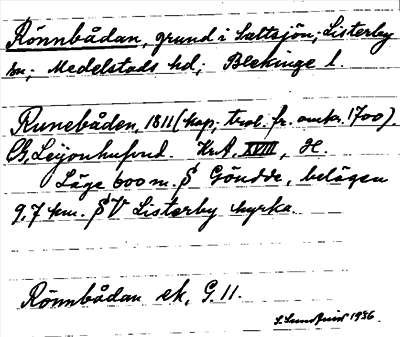 Rönnbådan, grund i Saltsjön; Listerby
sn; Medelstads hd; Blekinge l.
Runebåden, 1811 (kop; trol. fr. omkr. 1700).
G. Leijonhufvud. KrA, XVIII, H.
Läge 600 m. S Göndde, belägen
9,7 km. SV Listerby kyrka.
Rönnbådan ek, G. 11.
S. Lundquist 1936.